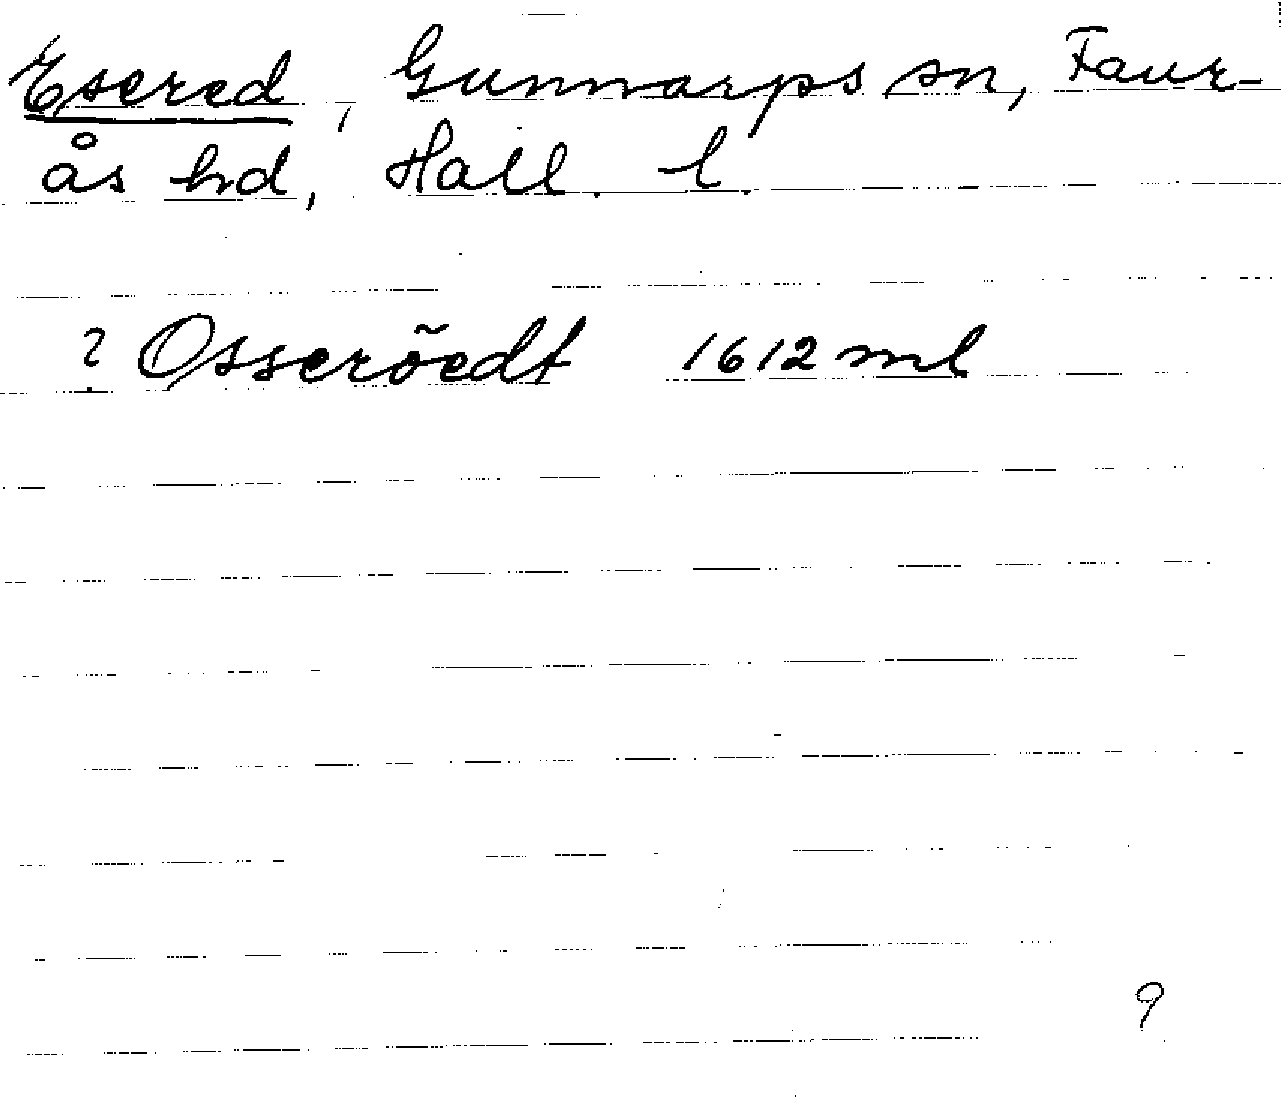 Esered, Gunnarps sn, Faur-
ås hd, Hall. l.
? Osserõedt 1612 ml
9